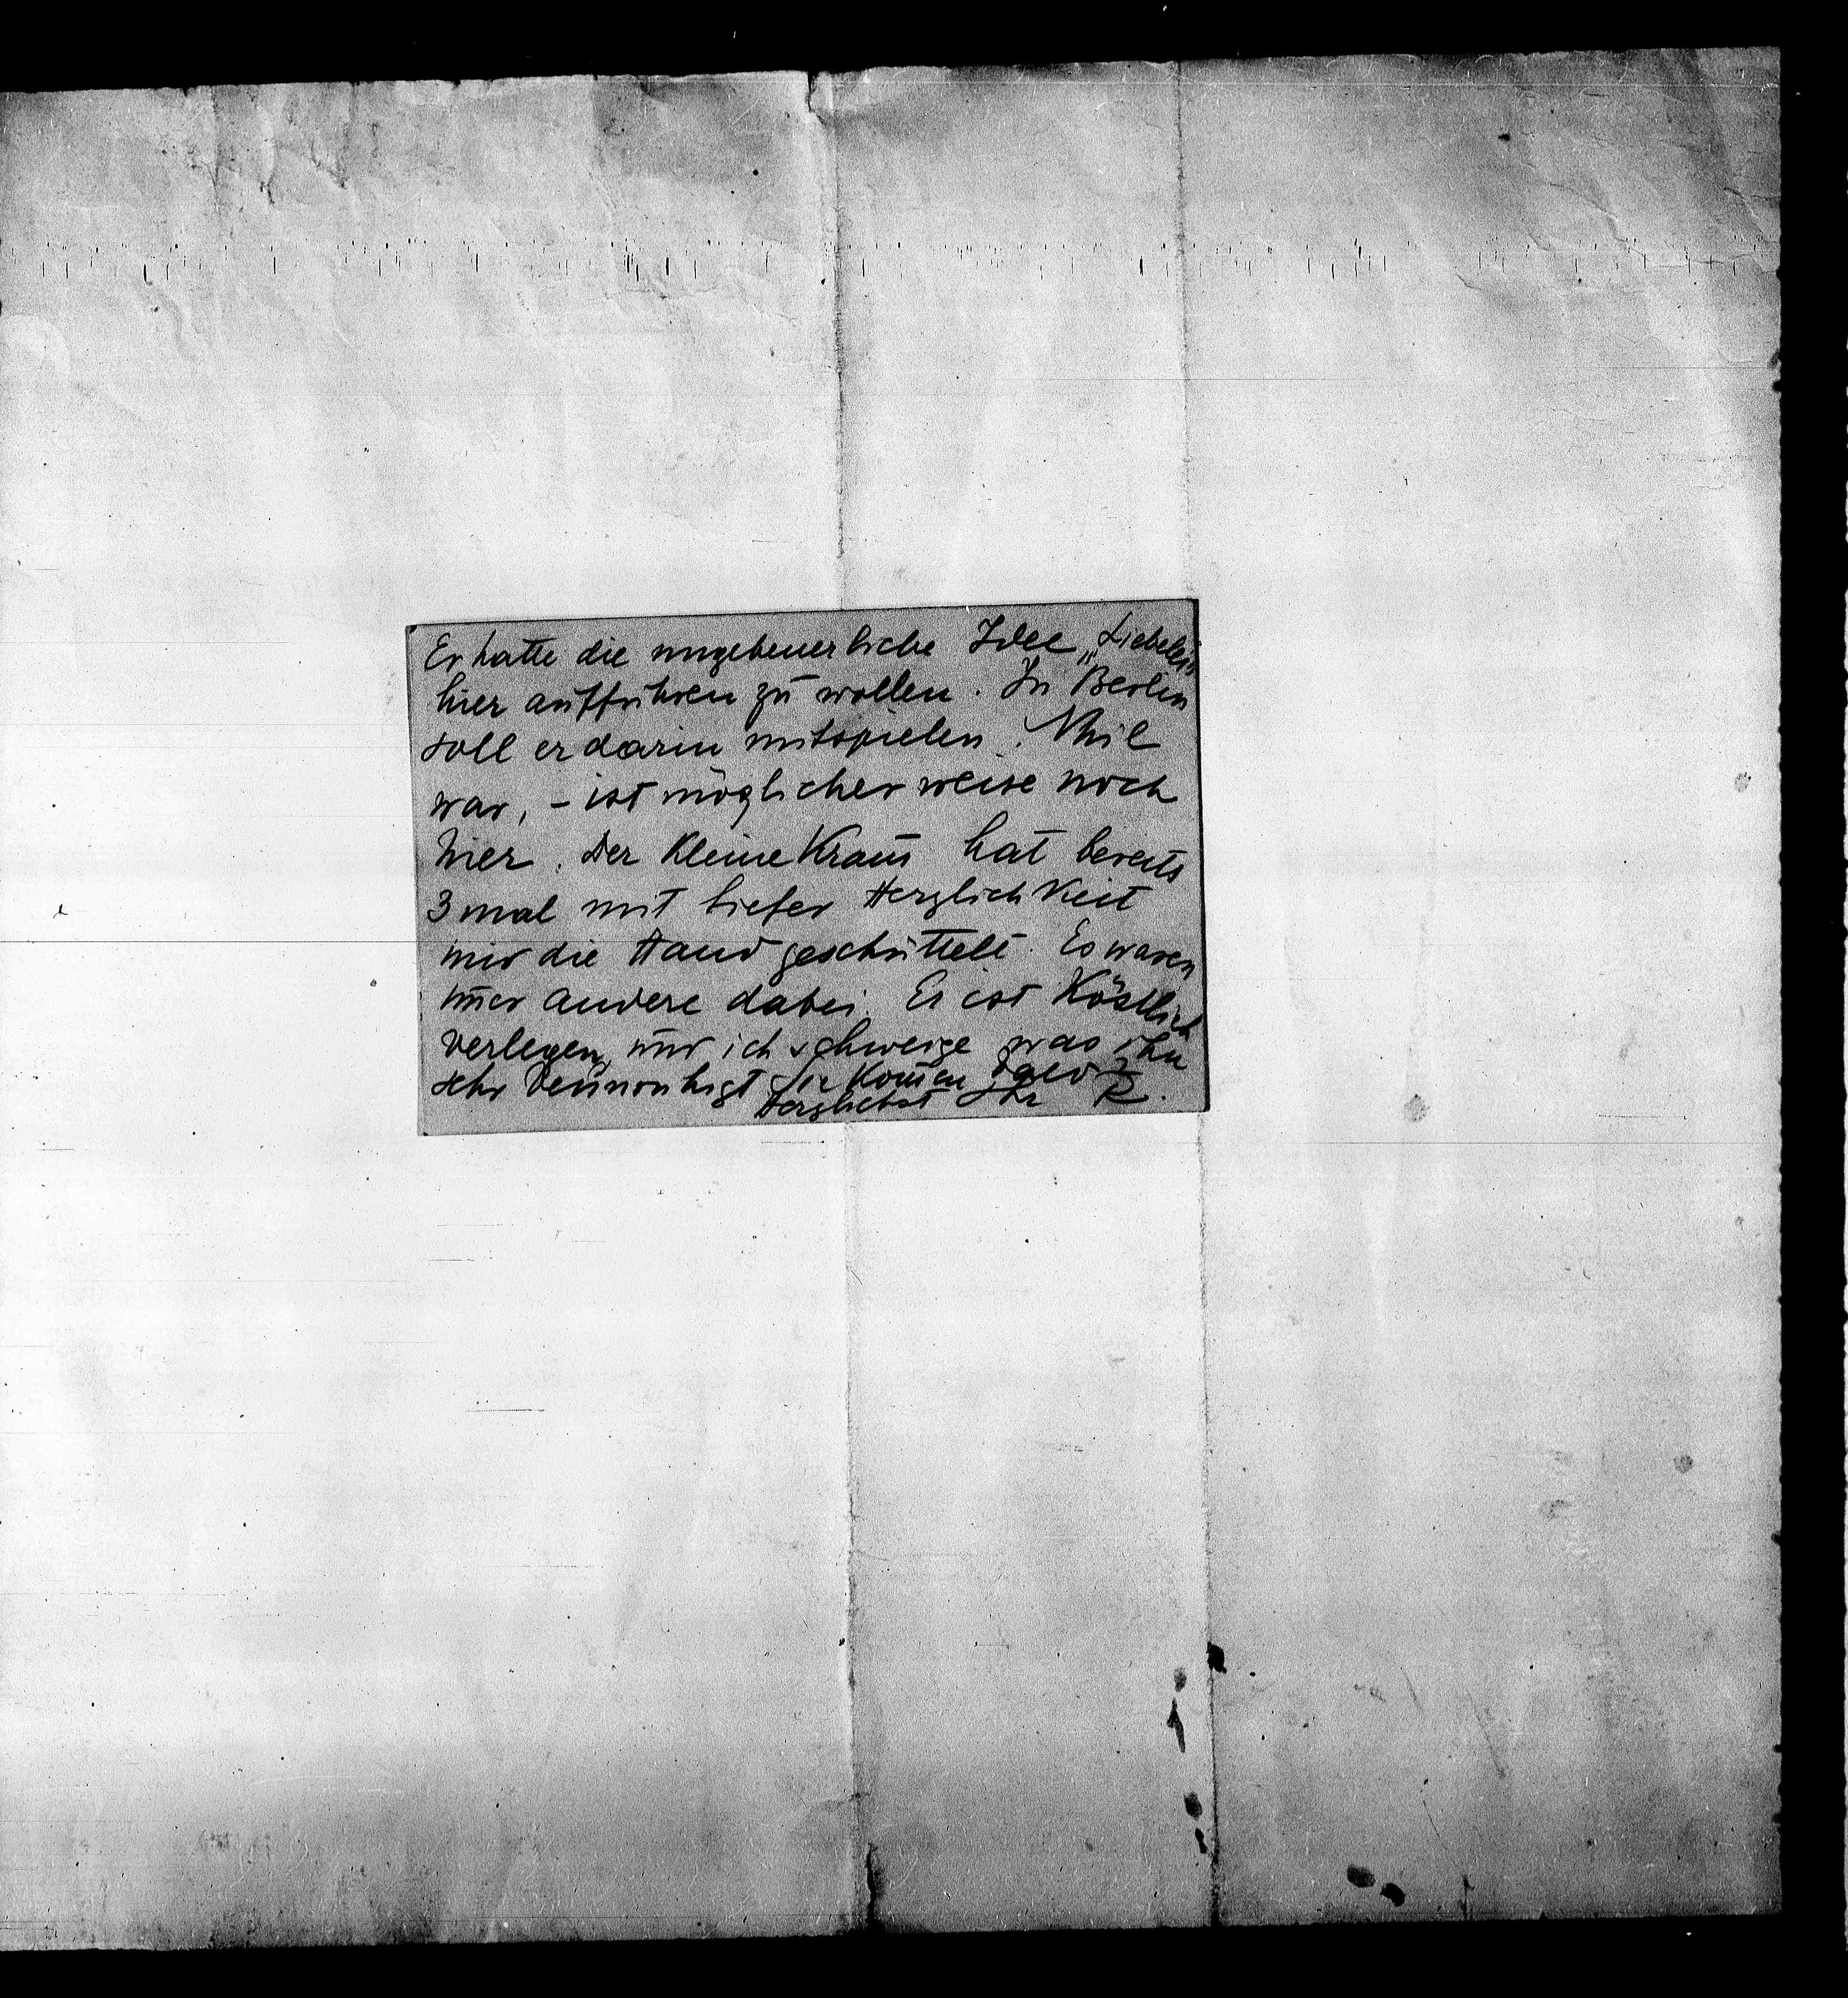 Er hatte die ungeheuerliche Idee „Liebelei"
hier aufführen zu wollen. In Berlin
soll er darin mitspielen.
war, – ist möglicherweise noch
hier. Der kleine Kraus hat bereits
3 mal mit tiefer Herzlichkeit
mir die Hand geschüttelt. Es waren
im̅er andere dabei. Er ist köstlich
verlegen, und ich schweige was ihn
sehr beunruhigt. Sie kom̅en bald?
Herzlichst Ihr R.